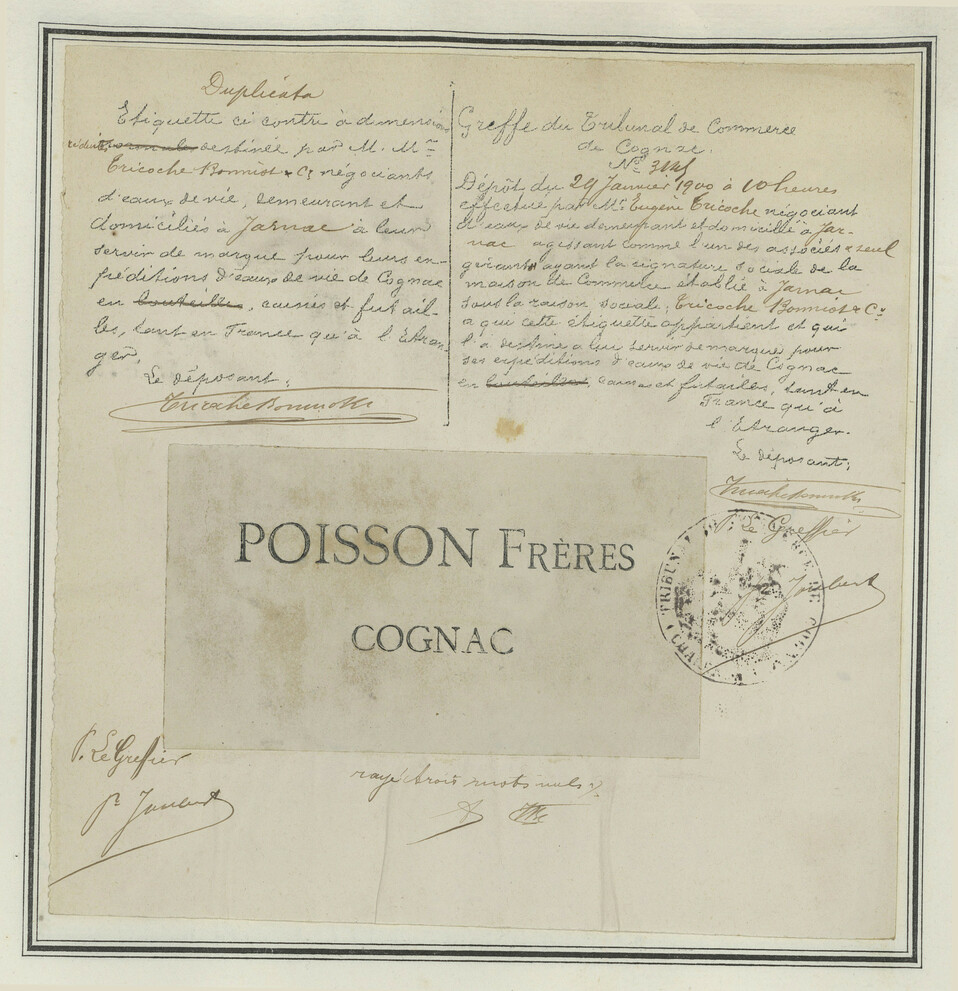 Duplicata
Etiquette ci contre à dimensions
réduites destinée par M. M.rs
Tricoche Bonniot & Cie négociants
d'eaux de vie, demeurant et
domiciliés à Jarnac à leur
servir de marque pour leurs ex-
péditions d'eaux de vie de Cognac
en bouteilles, caisses et futail-
les, tant en France qu'à l'Etran-
ger.
Le déposant:
Greffe du Tribunal de Commerce
de Cognac.
No
Dépôt du 29 Janvier 1900 à 10 heures
effectué par Mr Eugène Tricoche négociant
d'eaux de vie demeurant et domicilié à Jar-
nac agissant comme l'un des associés & seul
gérant ayant la signature sociale de la
maison de Commerce établie à Jarnac
sous la raison sociale: Tricoche Bonniot & Cie
a qui cette étiquette appartient et qui
l'a destine a leur servir de marque pour
ses expéditions d'eaux de vie de Cognac
en bouteilles, caisses et futailles, tant en
France qu'à
l'Etranger.
Le déposant:
P. Le Greffier
POISSON FRÈRES
COGNAC
TRIBUNAL DE COMMERCE DE COGNAC
P. Le Greffier
rayé trois mots nuls